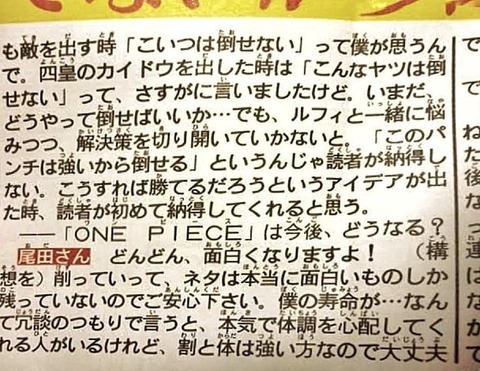 も敵を出す時「こいつは倒せない」って僕が思うん
で。四皇のカイドウを出した時は「こんなヤツは倒
せない」って、さすがに言いましたけど。いまだ、
どうやって倒せばいいか…でも、ルフィと一緒に悩
みつつ、解決策を切り開いていかないと、「このパ
ンチは強いから倒せる」というんじゃ読者が納得し
ない。こうすれば勝てるだろうというアイデアが出
た時、読者が初めて納得してくれると思う。
──「ONE PIECE」は今後、どうなる?
尾田さん どんどん、面白くなりますよ! (構
想を)削っていって、ネタは本当に面白いものしか
残っていないのでご安心下さい。僕の寿命が…なん
て冗談のつもりで言うと、本気で体調を心配してく
れる人がいるけれど、割と体は強い方なので大丈夫